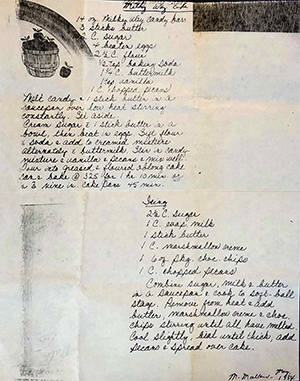 Milky Way Cake
14 oz Milky Way Candy bars
3 sticks butter
2 C. sugar
4 beaten eggs
2½ C. flour
½ tsp baking soda
1¼ C. buttermilk
1 tsp. vanilla
1 C. chopped pecans
Melt candy & 1 stick butter in a
saucepan over low heat stirring
constantly. Set aside.
Cream sugar & 1 stick butter in a
bowl, then beat in eggs. Sift flour
& soda & add to creamed mixture
alternately & buttermilk. Stir in candy
mixture & vanilla & pecans & mix well.
Pour into greased & floured oblong cake
pan & bake @ 325 for 1 hr 10 min or
in 3 nine in. cake pans 45 min.
Icing
2½ C. sugar
1 C. evap. milk
1 stick butter
1 C. marshmallow creme
1 6 oz pkg. choc. chips
1 C. chopped pecans
Combine sugar, milk & butter
in a saucepan & cook to soft-ball
stage. Remove from heat & add
butter, marshmallow creme & choc.
chips stirring until all have melted.
Cool slightly, beat until thick, add
pecans & spread over cake.